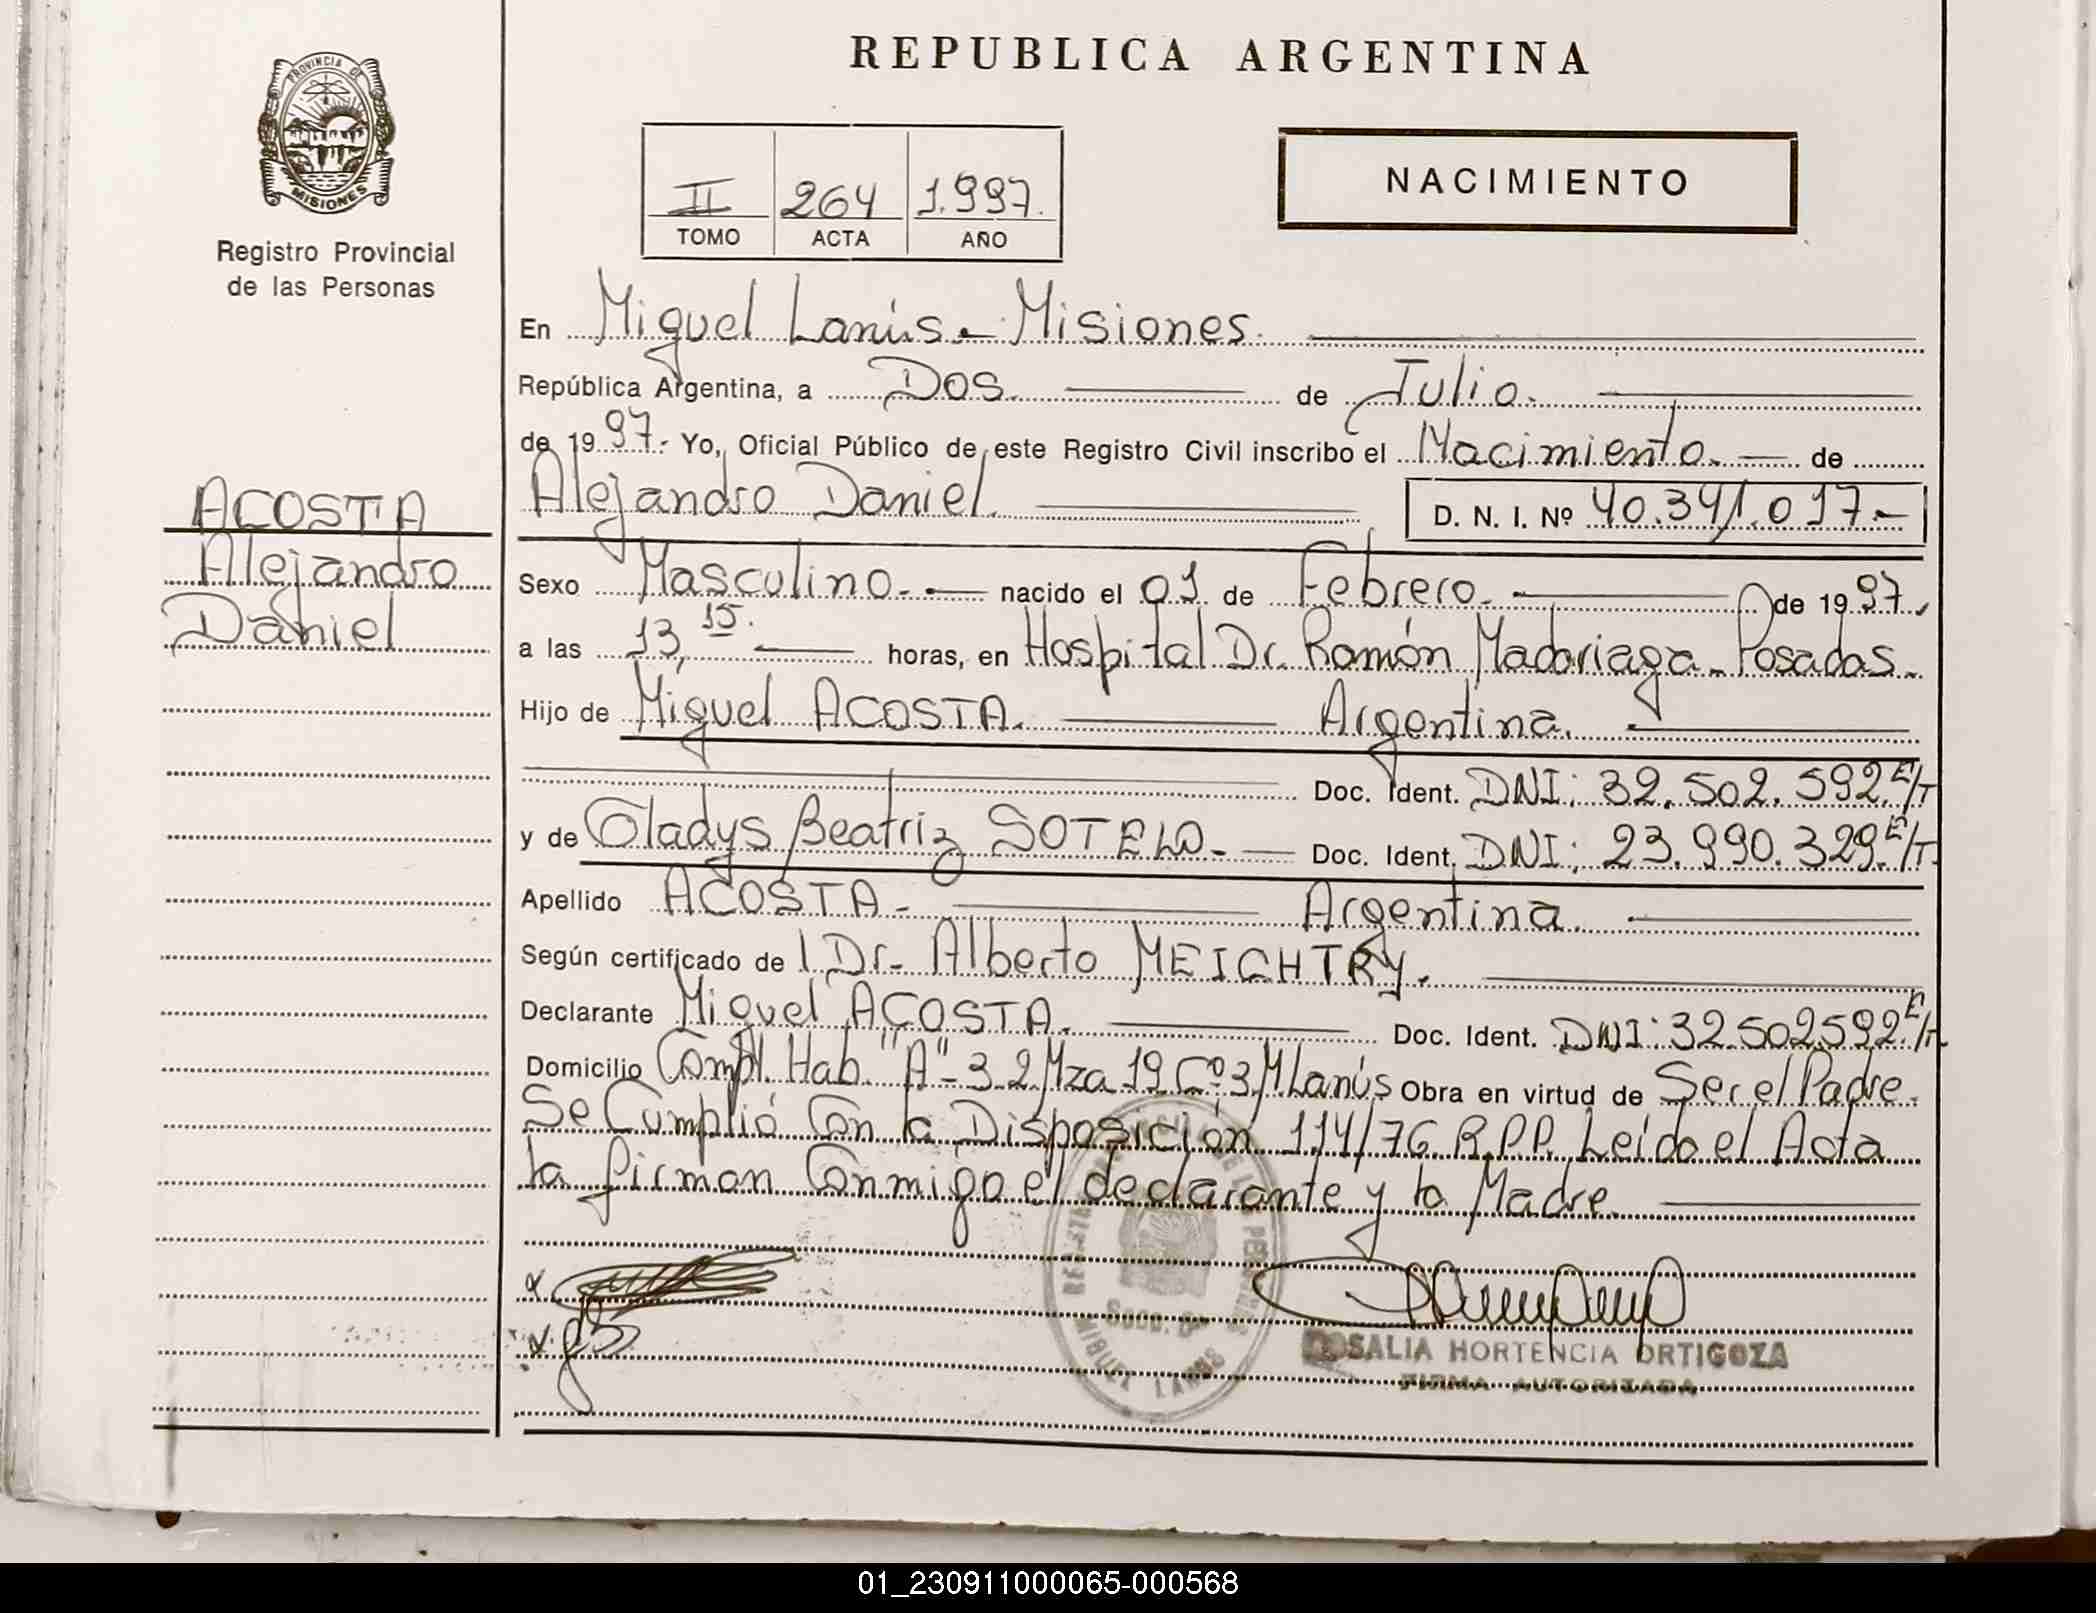 REPUBLICA ARGENTINA
PROVINCIA DE
MISIONES
Registro Provincial
de las Personas
II 264 1.997.
TOMO ACTA AÑO
NACIMIENTO
En Miguel Lanús - Misiones.
República Argentina, a Dos. de Julio.
de 1997.- Yo, Oficial Público de este Registro Civil inscribo el Nacimiento. de
Alejandro Daniel. D. N. I. Nº 40.341.017.-
ACOSTA
Alejandro
Daniel
Sexo Masculino.- nacido el 01 de Febrero. de 1997.
a las 13,15. horas, en Hospital Dr. Ramón Madariaga - Posadas.
Hijo de Miguel ACOSTA. Argentina.
Doc. Ident. DNI: 32.502.592 E/T
y de Gladys Beatriz SOTELO. Doc. Ident. DNI: 23.990.329. E/T.
Apellido ACOSTA - Argentina.
Según certificado de l Dr. Alberto MEICHTRY.
Declarante Miguel ACOSTA. Doc. Ident. DNI: 32.502592. E/T
Domicilio Compl. Hab "A" - 32 Mza 19 Cº3, M Lanús Obra en virtud de Ser el Padre.
Se Cumplió Con la Disposición 114/76 R.P.P. Leída el Acta
la firman Conmigo el declarante y la Madre.
MIGUEL LANUS
ROSALIA HORTENCIA ORTIGOZA
FIRMA AUTORIZADA
01_230911000065-000568